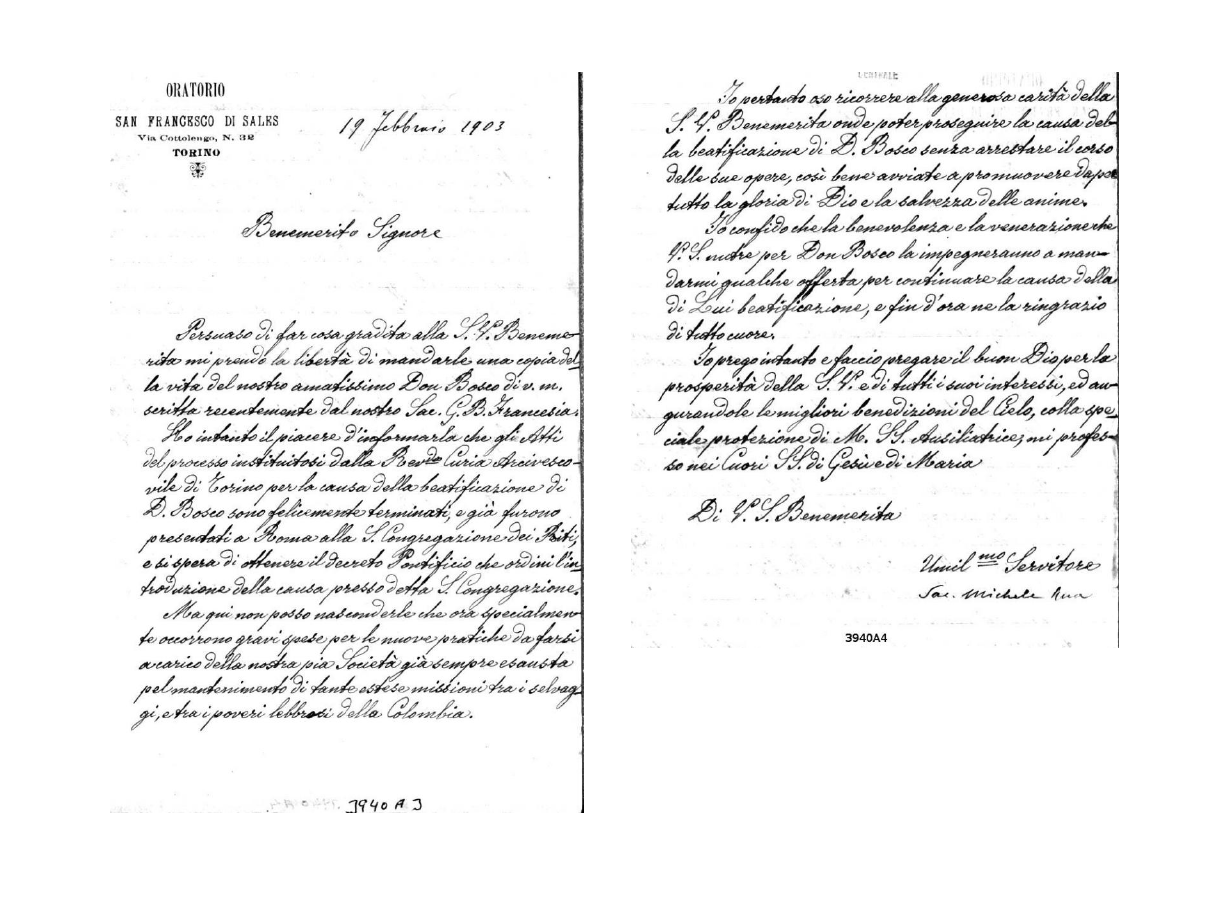 ORATORIO
SAN FRANCESCO DI SALES
Via Cottolengo, N. 32
TORINO
19 Febbraio 1903
Benemerito Signore
Persuaso di far cosa gradita alla S. V. Beneme-
rita mi prendo la libertà di mandarle una copia del-
la vita del nostro amatissimo Don Bosco di v. m.
scritta recentemente dal nostro Sac. G. B. Francesia.
Ho intanto il piacere d'informarla che gli Atti
del processo instituitosi dalla Rev.da Curia Arcivesco-
vile di Torino per la causa della beatificazione di
D. Bosco sono felicemente terminati, e già furono
presentati a Roma alla S. Congregazione dei Riti,
e si spera di ottenere il decreto Pontificio che ordini l'in-
troduzione della causa presso detta S. Congregazione.
Ma qui non posso nasconderle che ora specialmen-
te occorrono gravi spese per le nuove pratiche da farsi
a carico della nostra pia Società già sempre esausta
pel mantenimento di tante estese missioni tra i selvag-
gi, e tra i poveri lebbrosi della Colombia.
3940 A 3
CENTRALE
Io pertanto oso ricorrere alla generosa carità della
S. V. Benemerita onde poter proseguire la causa del-
la beatificazione di D. Bosco senza arrestare il corso
delle sue opere, così bene avviate a promuovere daper
tutto la gloria di Dio e la salvezza delle anime.
Io confido che la benevolenza e la venerazione che
V. S. nutre per Don Bosco la impegneranno a man-
darmi qualche offerta per continuare la causa della
di Lui beatificazione, e fin d'ora ne la ringrazio
di tutto cuore.
Io prego intanto e faccio pregare il buon Dio per la
prosperità della S. V. e di tutti i suoi interessi, ed au-
gurandole le migliori benedizioni del Cielo, colla spe-
ciale protezione di M. SS. Ausiliatrice, mi profes-
so nei Cuori SS. di Gesù e di Maria
Di V. S. Benemerita
Umil.mo Servitore
Sac. Michele Rua
3940A4